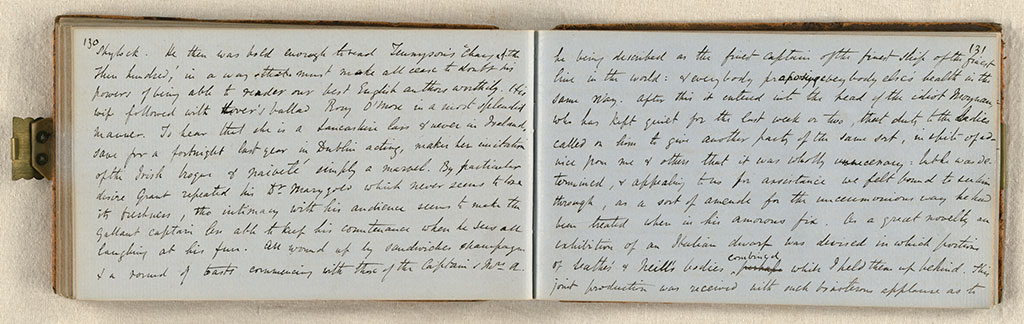 130
Shylock. He then was bold enough to read Tennyson's "Charge of the
Three hundred," in a way that must make all cease to doubt his
powers of being able to render our best English authors worthily. His
wife followed with Lover's ballad Rory O'More in a most splendid
manner. To hear that she is a Lancashire lass & never in Ireland
save for a fortnight last year in Dublin acting, makes her imitation
of the Irish brogue & naiveté simply a marvel. By particular
desire Grant repeated his Dr Marygold which never seems to lose
its freshness, tho intimacy with his audience seems to make the
gallant captain less able to keep his countenance when he sees all
laughing at his fun. All wound up by sandwiches champagne
& a round of toasts commencing with those of the Captain & Mrs A.
131
he being described as the finest captain of the finest ship of the finest
line in the world: & everybody proposing everybody else's health in the
same way. After this it entered into the head of the idiot
who has kept quiet for the last week or two, that duty to the ladies
called on him to give another party of the same sort, in spite of ad-
vice from me & others that it was wholly unnecessary. but he was de-
termined, & appealing to us for assistance we felt bound to see him
through, as a sort of amende for the unceremonious way he had
been treated when in his amorous fix. As a great novelty an
exhibition of an Italian dwarf was devised in which portions
of & Neill's bodies combined while I held them up behind. This
joint production was received with such boisterous applause as to